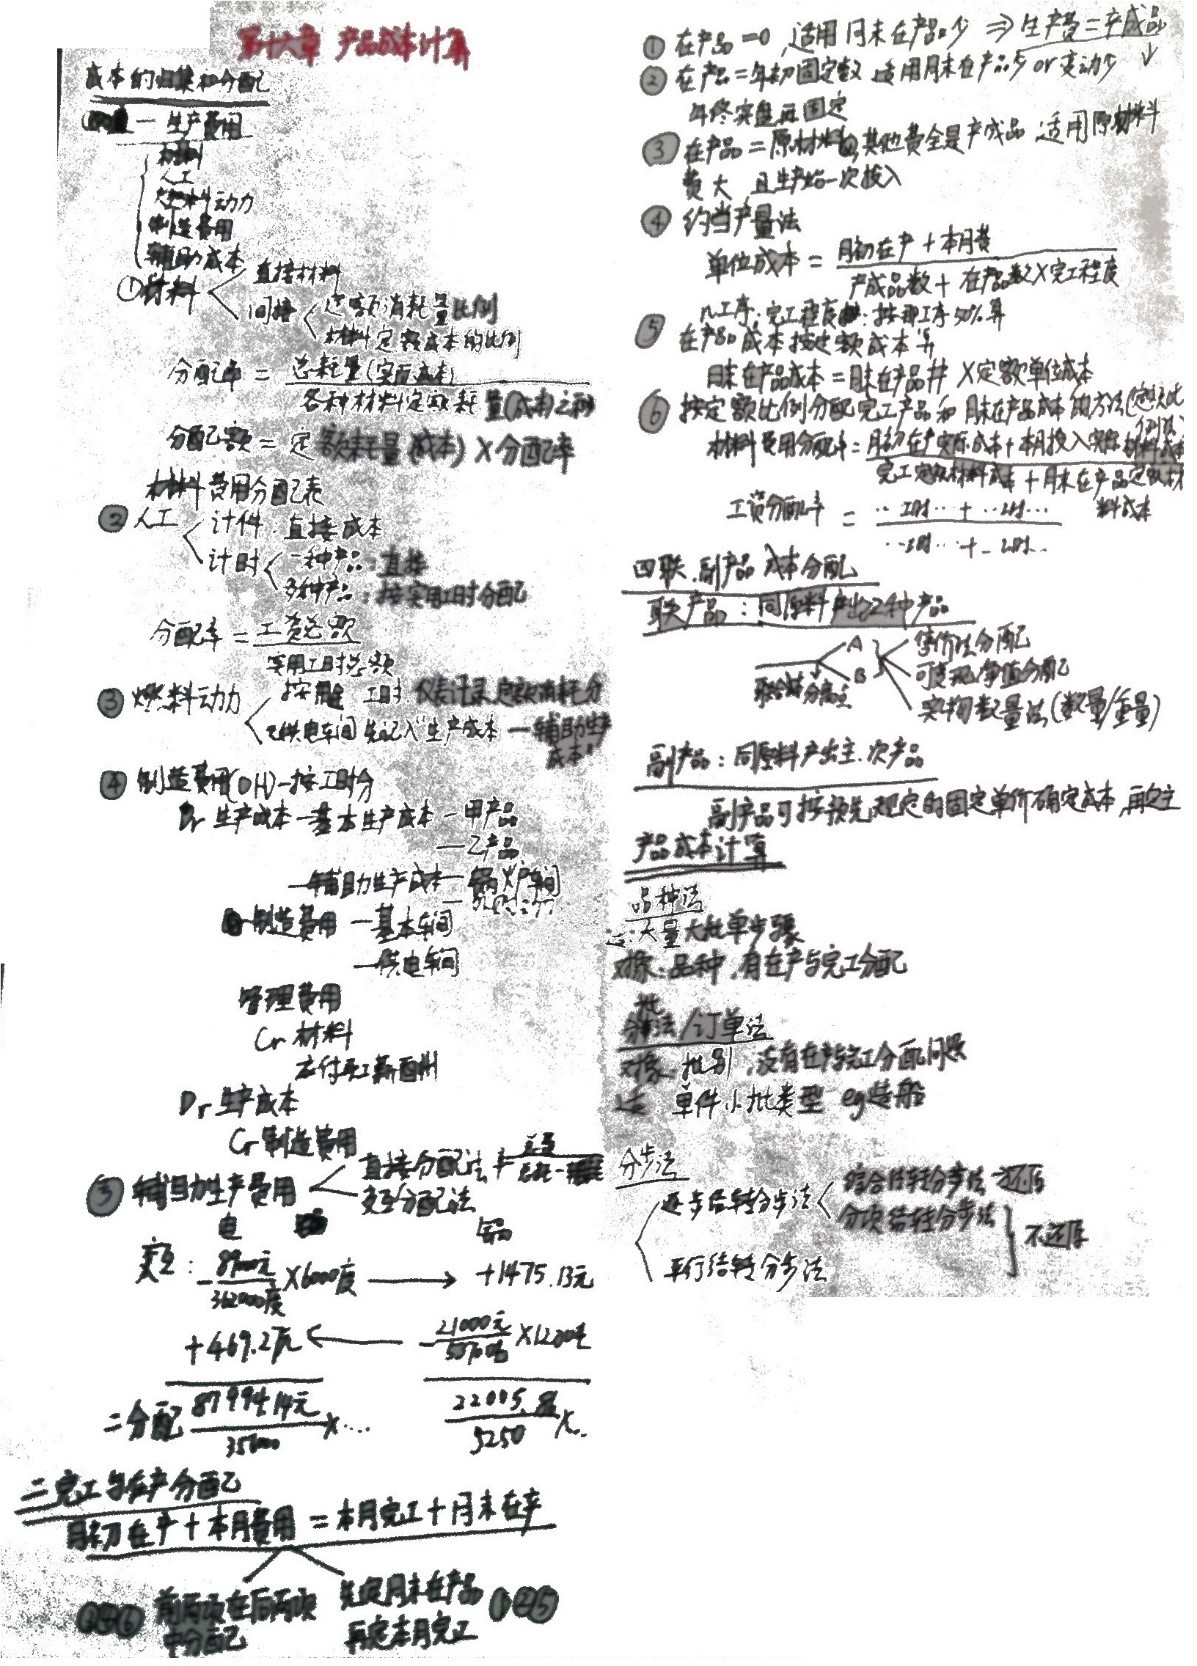 第十六章 产品成本计算
成本的归集和分配
一 生产费用
材料
人工
燃料动力
制造费用
辅助成本
①材料 直接材料
间接 定额消耗量比例
材料定额成本的比例
分配率 = 总耗量(实际成本)
各种材料定额耗量(成本)之和
分配额 = 定额耗量(成本)×分配率
材料费用分配表
② 人工 计件:直接成本
计时 一种产品:直接
多种产品:按实用工时分配
分配率 = 工资总额
实用工时总额
③ 燃料动力 按用量 工时 仪表记录 定额消耗分
供电车间 先记入"生产成本—辅助生产成本"
④ 制造费用(OH)-按工时分
Dr 生产成本-基本生产成本-甲产品
—乙产品
—辅助生产成本—锅炉车间
制造费用—基本车间
—供电车间
管理费用
Cr 材料
应付职工薪酬
Dr 生产成本
Cr 制造费用
辅助生产费用 直接分配法
交互分配法
电 锅
交互: - 89000元 / 362000度 ×6000度 → +1475.13元
+469.27元 ← - 21000元 / ×1200吨
二分配 87994.14元 / 356000 ×… 22005. / 5250 ×.
二 完工与在产分配
月初在产+本月费用 = 本月完工+月末在产
前两项在后两项 先定月末在产品 ①②⑤
中分配 再定本月完工
① 在产品=0,适用月末在产品少 ⇒ 生产费=产成品
② 在产品=年初固定数 适用月末在产品少or变动少
年终实盘再固定
③ 在产品=原材料 其他费全是产成品 适用原材料
费大 且生产始一次投入
④ 约当产量法
单位成本 = 月初在产+本月费
产成品数+在产品数×完工程度
n工序:完工程度:按那工序50%算
⑤ 在产品成本按定额成本算
月末在产品成本=月末在产品件×定额单位成本
⑥ 按定额比例分配完工产品和月末在产品成本的方法(定额比例法)
材料费用分配率 = 月初在产实际成本+本月投入实际材料成本
完工定额材料成本+月末在产品定额材料成本
工资分配率 = ‥工时‥+‥工时‥
‥工时‥+‥工时‥
四 联、副产品成本分配
联产品:同原料产出≥2种产品
A 售价法分配
B 可变现净值分配
实物数量法(数量/重量)
副产品:同原料产出主、次产品
副产品可按预先规定的固定单价确定成本,再定主
产品成本计算
品种法
适:大量大批单步骤
对象:品种,有在产与完工分配
分批法/订单法
对象 批别,没有在产与完工分配问题
适 单件小批类型 eg造船
分步法
逐步结转分步法 综合结转分步法 还原
分项结转分步法
不还原
平行结转分步法